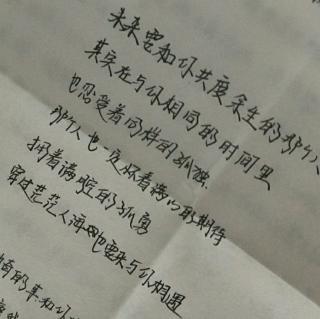 未来要和你共度余生的那个人
其实在与你相同的时间里
也忍受着同样的孤独.
那个人也一定怀着满心的期待
拥着满腔的孤勇
穿过茫茫人海也要来与你相遇
的车和你